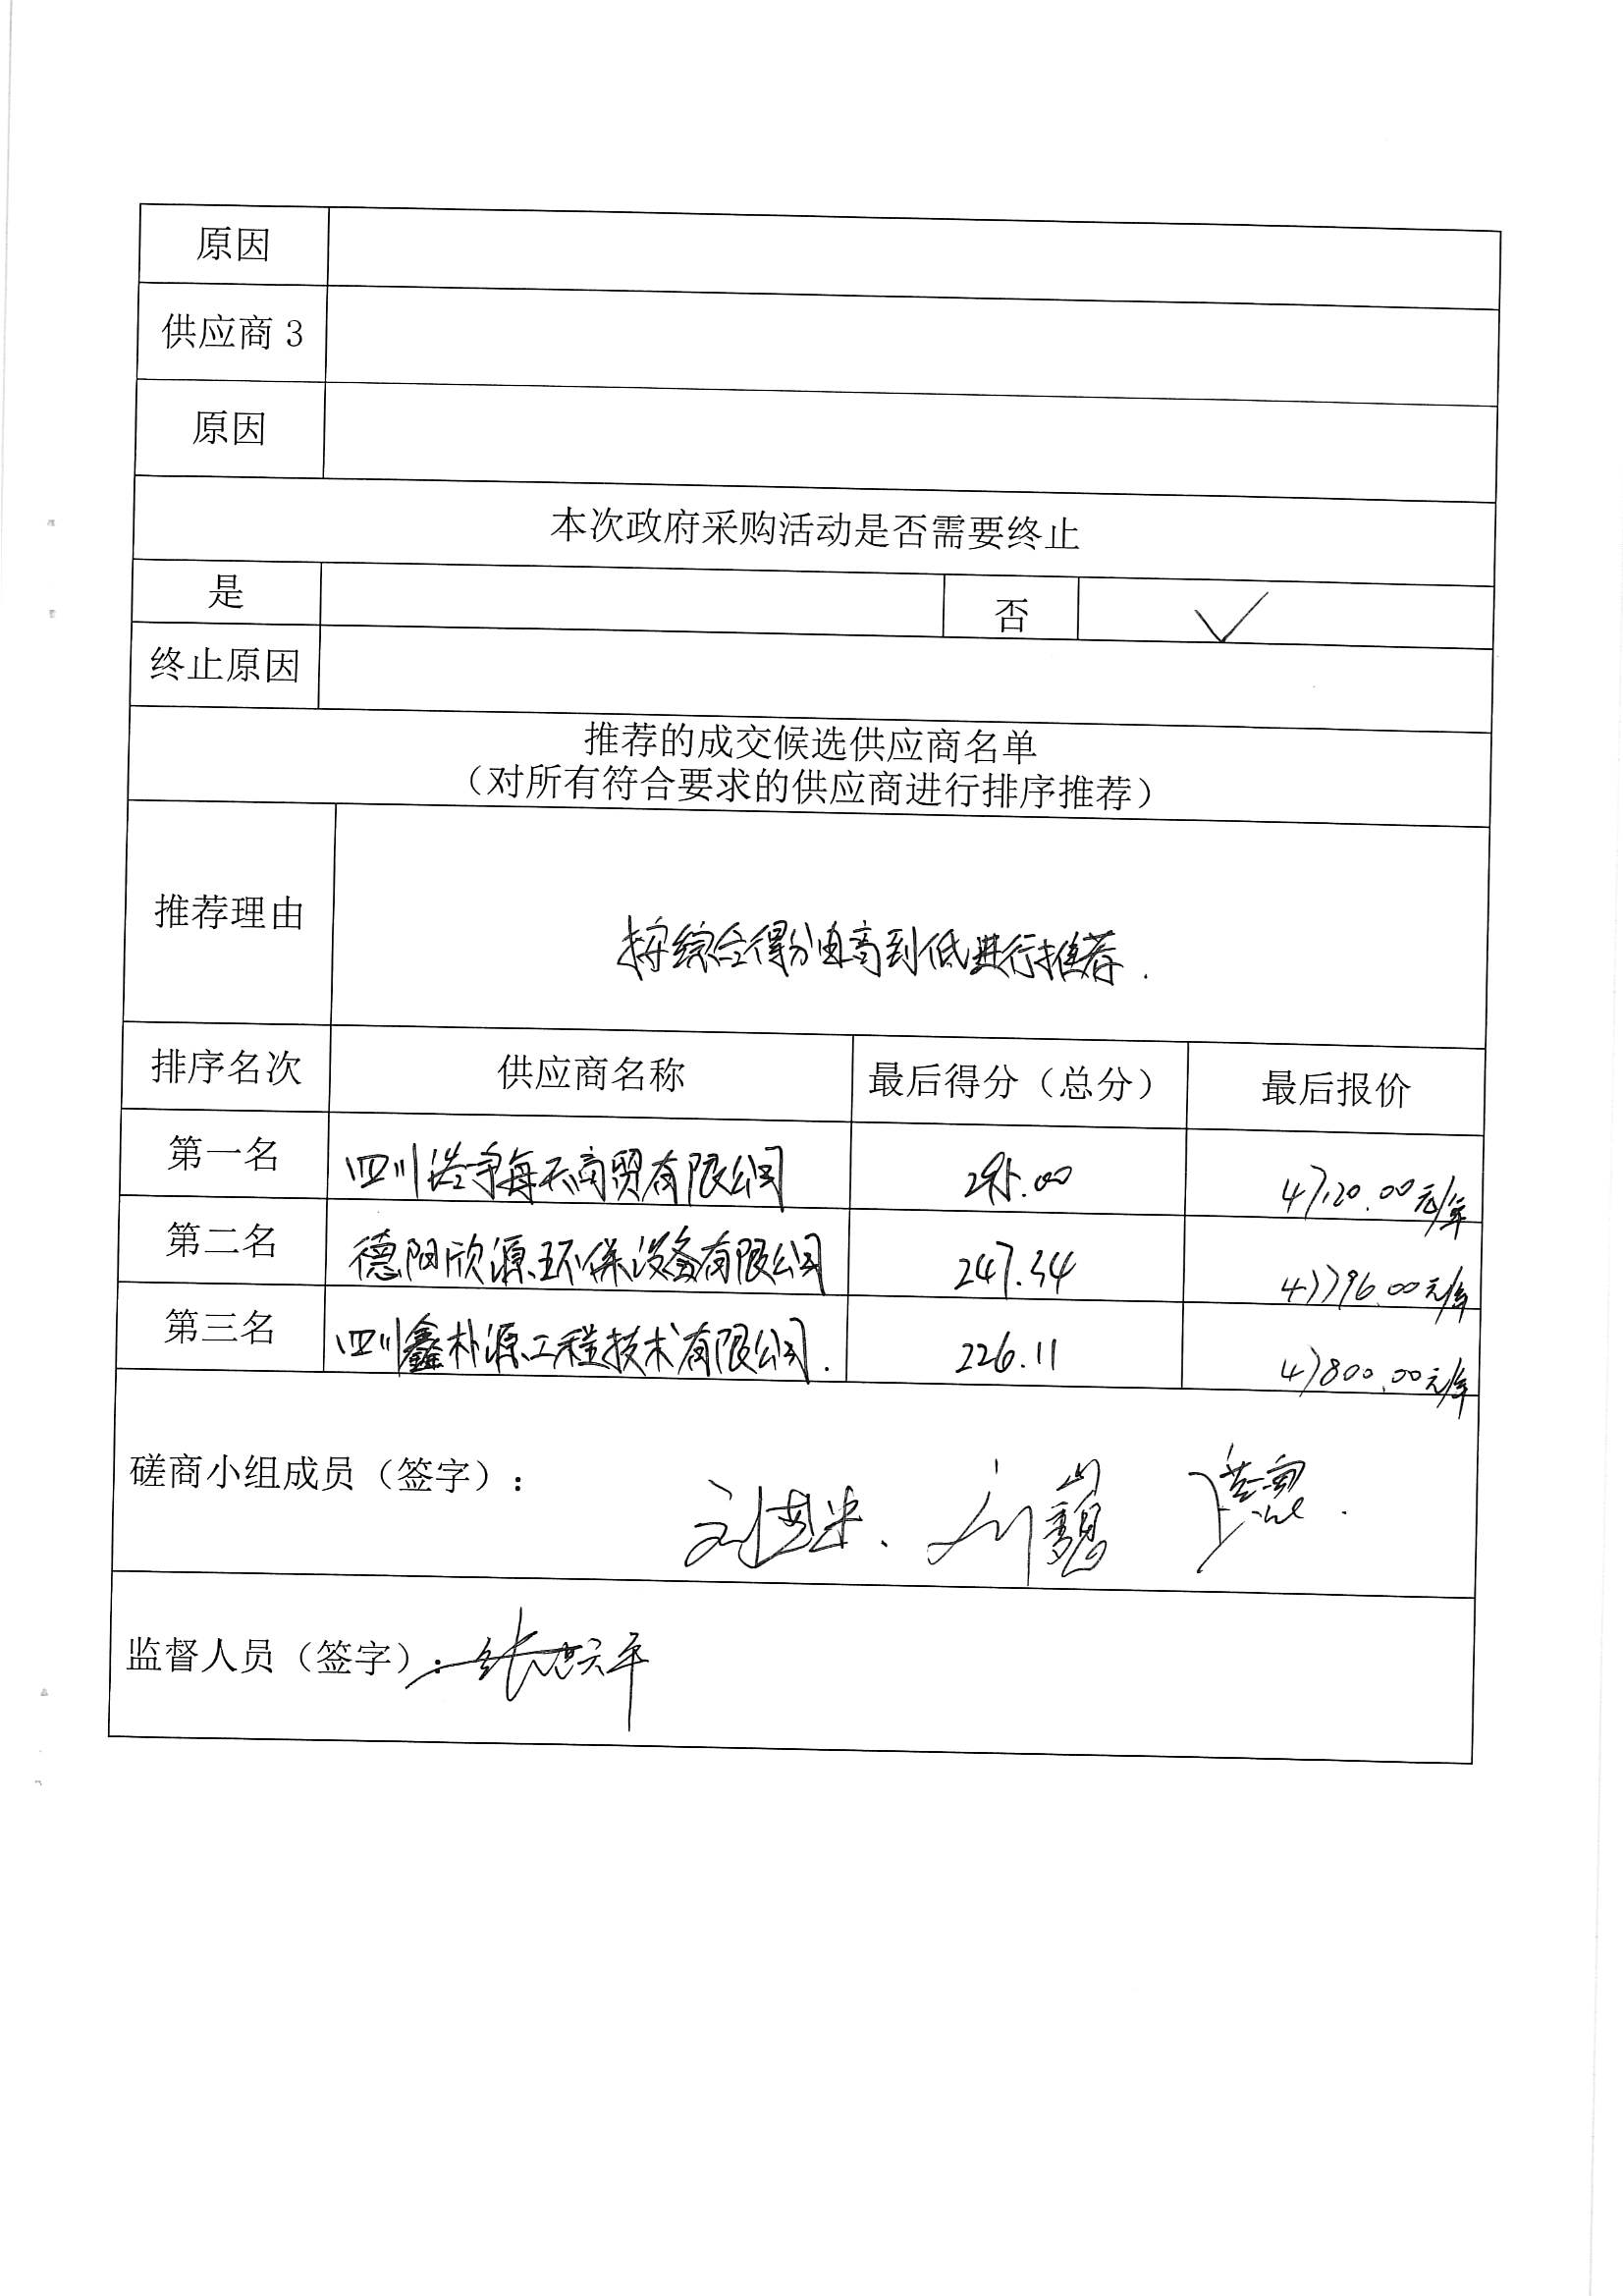 原因
供应商 3
原因
本次政府采购活动是否需要终止
是 否 ✓
终止原因
推荐的成交候选供应商名单
（对所有符合要求的供应商进行排序推荐）
推荐理由 按综合得分由高到低进行推荐.
排序名次 供应商名称 最后得分（总分） 最后报价
第一名 四川 每天商贸有限公司 .00 47120.00元/年
第二名 德阳欣源环保设备有限公司 247.34 47796.00元/年
第三名 四川鑫朴源工程技术有限公司. 226.11 47800.00元/年
磋商小组成员（签字）：
监督人员（签字）：